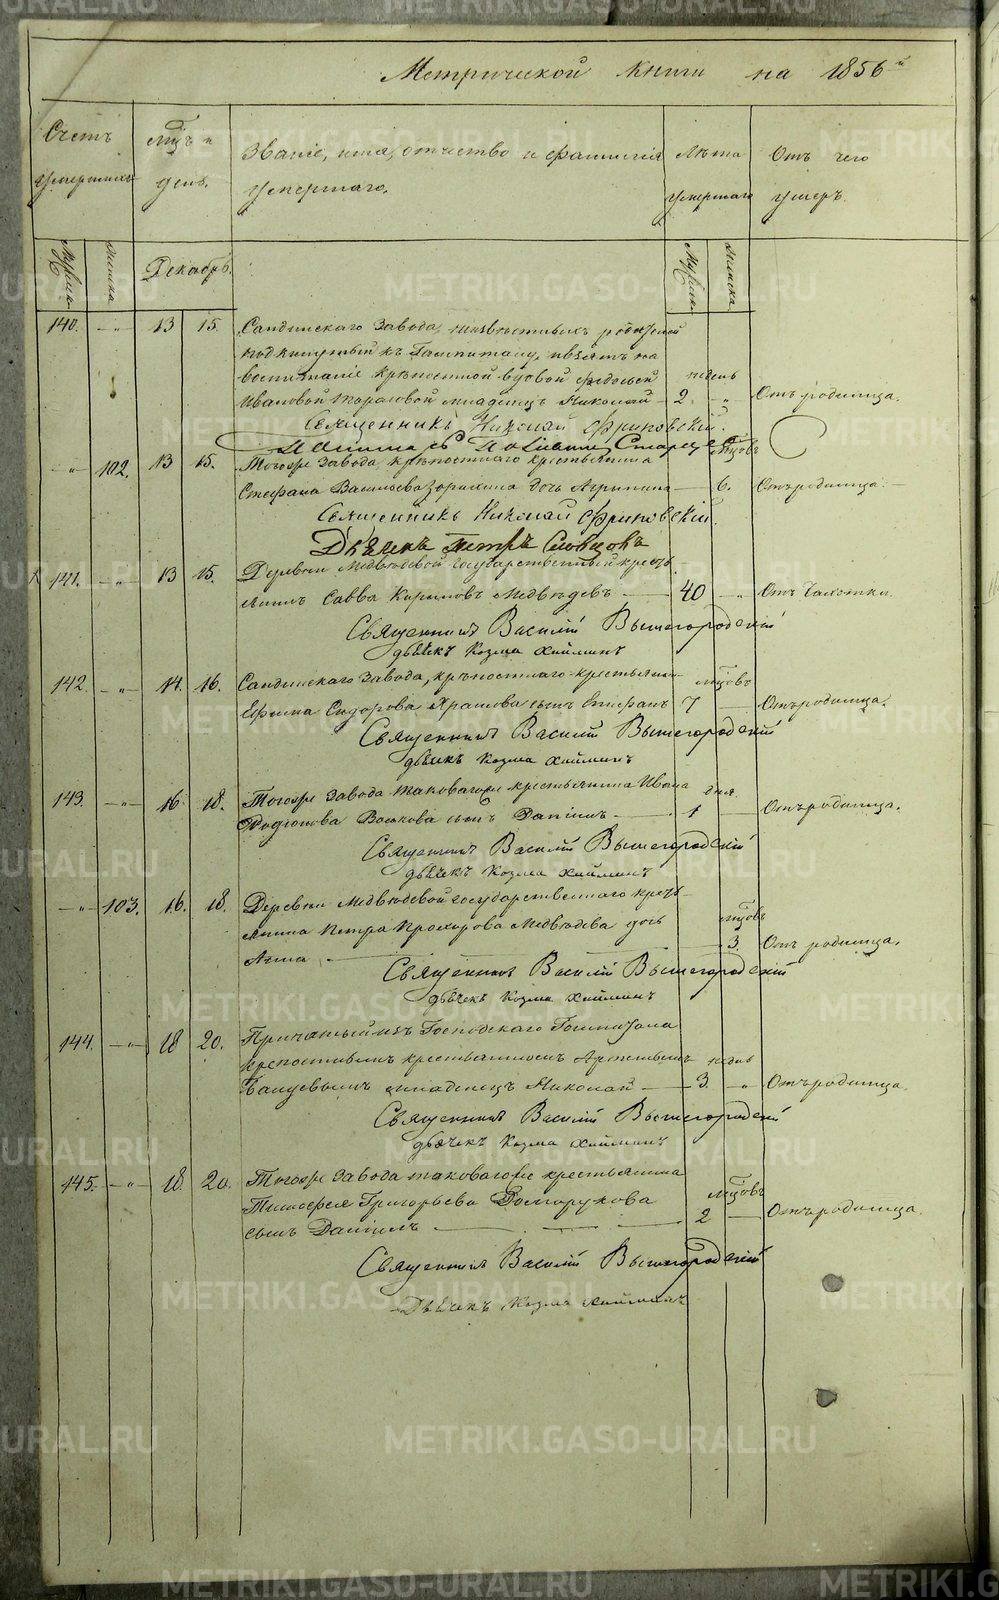 Метрической книги на 1856й
Счетъ умершихъ
мѣсяцъ и день.
Званіе, имя, отчество и фамилія умершаго.
Лѣта умершаго
Отъ чего умеръ.
Мужска
Женска
Декабрь.
Мужска
Женска
140. —„— 13 15. Саидинскаго Завода, неизвѣстныхъ родителей
подкинутый къ Гошпиталю, и взятъ на
воспитаніе крѣпостной вдовой Федосьей недель
Ивановой младенецъ Николай — 2. —„— Отъ родимца.
Священникъ Николай Фриновскій.
—„— 102. 13 15. Тогоже Завода, крѣпостнаго крестьянина мцовъ
Стефана Васильева дочь Агрипина — 6. Отъ родимца.
Священникъ Николай Фриновскій.
Дьячекъ Петръ
141. —„— 13 15. Деревни Медвѣдевой государственный кресть-
янинъ Савва Карповъ Медвѣдевъ — 40 —„— Отъ Чахотки.
Священникъ Василій Вышегородскій
дьячекъ Козма
142. —„— 14. 16. Завода, крѣпостнаго крестьянина мцовъ
Ефима Сидорова сынъ Стефанъ 7 — Отъ родимца.
Священникъ Василій Вышегородскій
дьячекъ Козма
143. —„— 16. 18. Тогоже Завода таковагоже крестьянина Ивана дня.
Родіонова сынъ Даніилъ — 1 — Отъ родимца.
Священникъ Василій Вышегородскій
дьячекъ Козма
—„— 103. 16. 18. Деревни Медвѣдевой государственнаго кресть-
янина Петра Прохорова Медвѣдева дочь мцовъ
Анна — 3. Отъ родимца.
Священникъ Василій Вышегородскій
дьячекъ Козма
144. —„— 18 20. Господскаго Гошпиталя
крестьяниномъ недель
младенецъ Николай — 3. „ Отъ родимца.
Священникъ Василій Вышегородскій
дьячекъ Козма
145. —„— 18. 20. Тогоже Завода таковагоже крестьянина
Тимофея Григорьева Долгорукова мцовъ
сынъ Даніилъ — 2 — Отъ родимца.
Священникъ Василій Вышегородскій
Дьячекъ Козма
METRIKI.GASO-URAL.RU